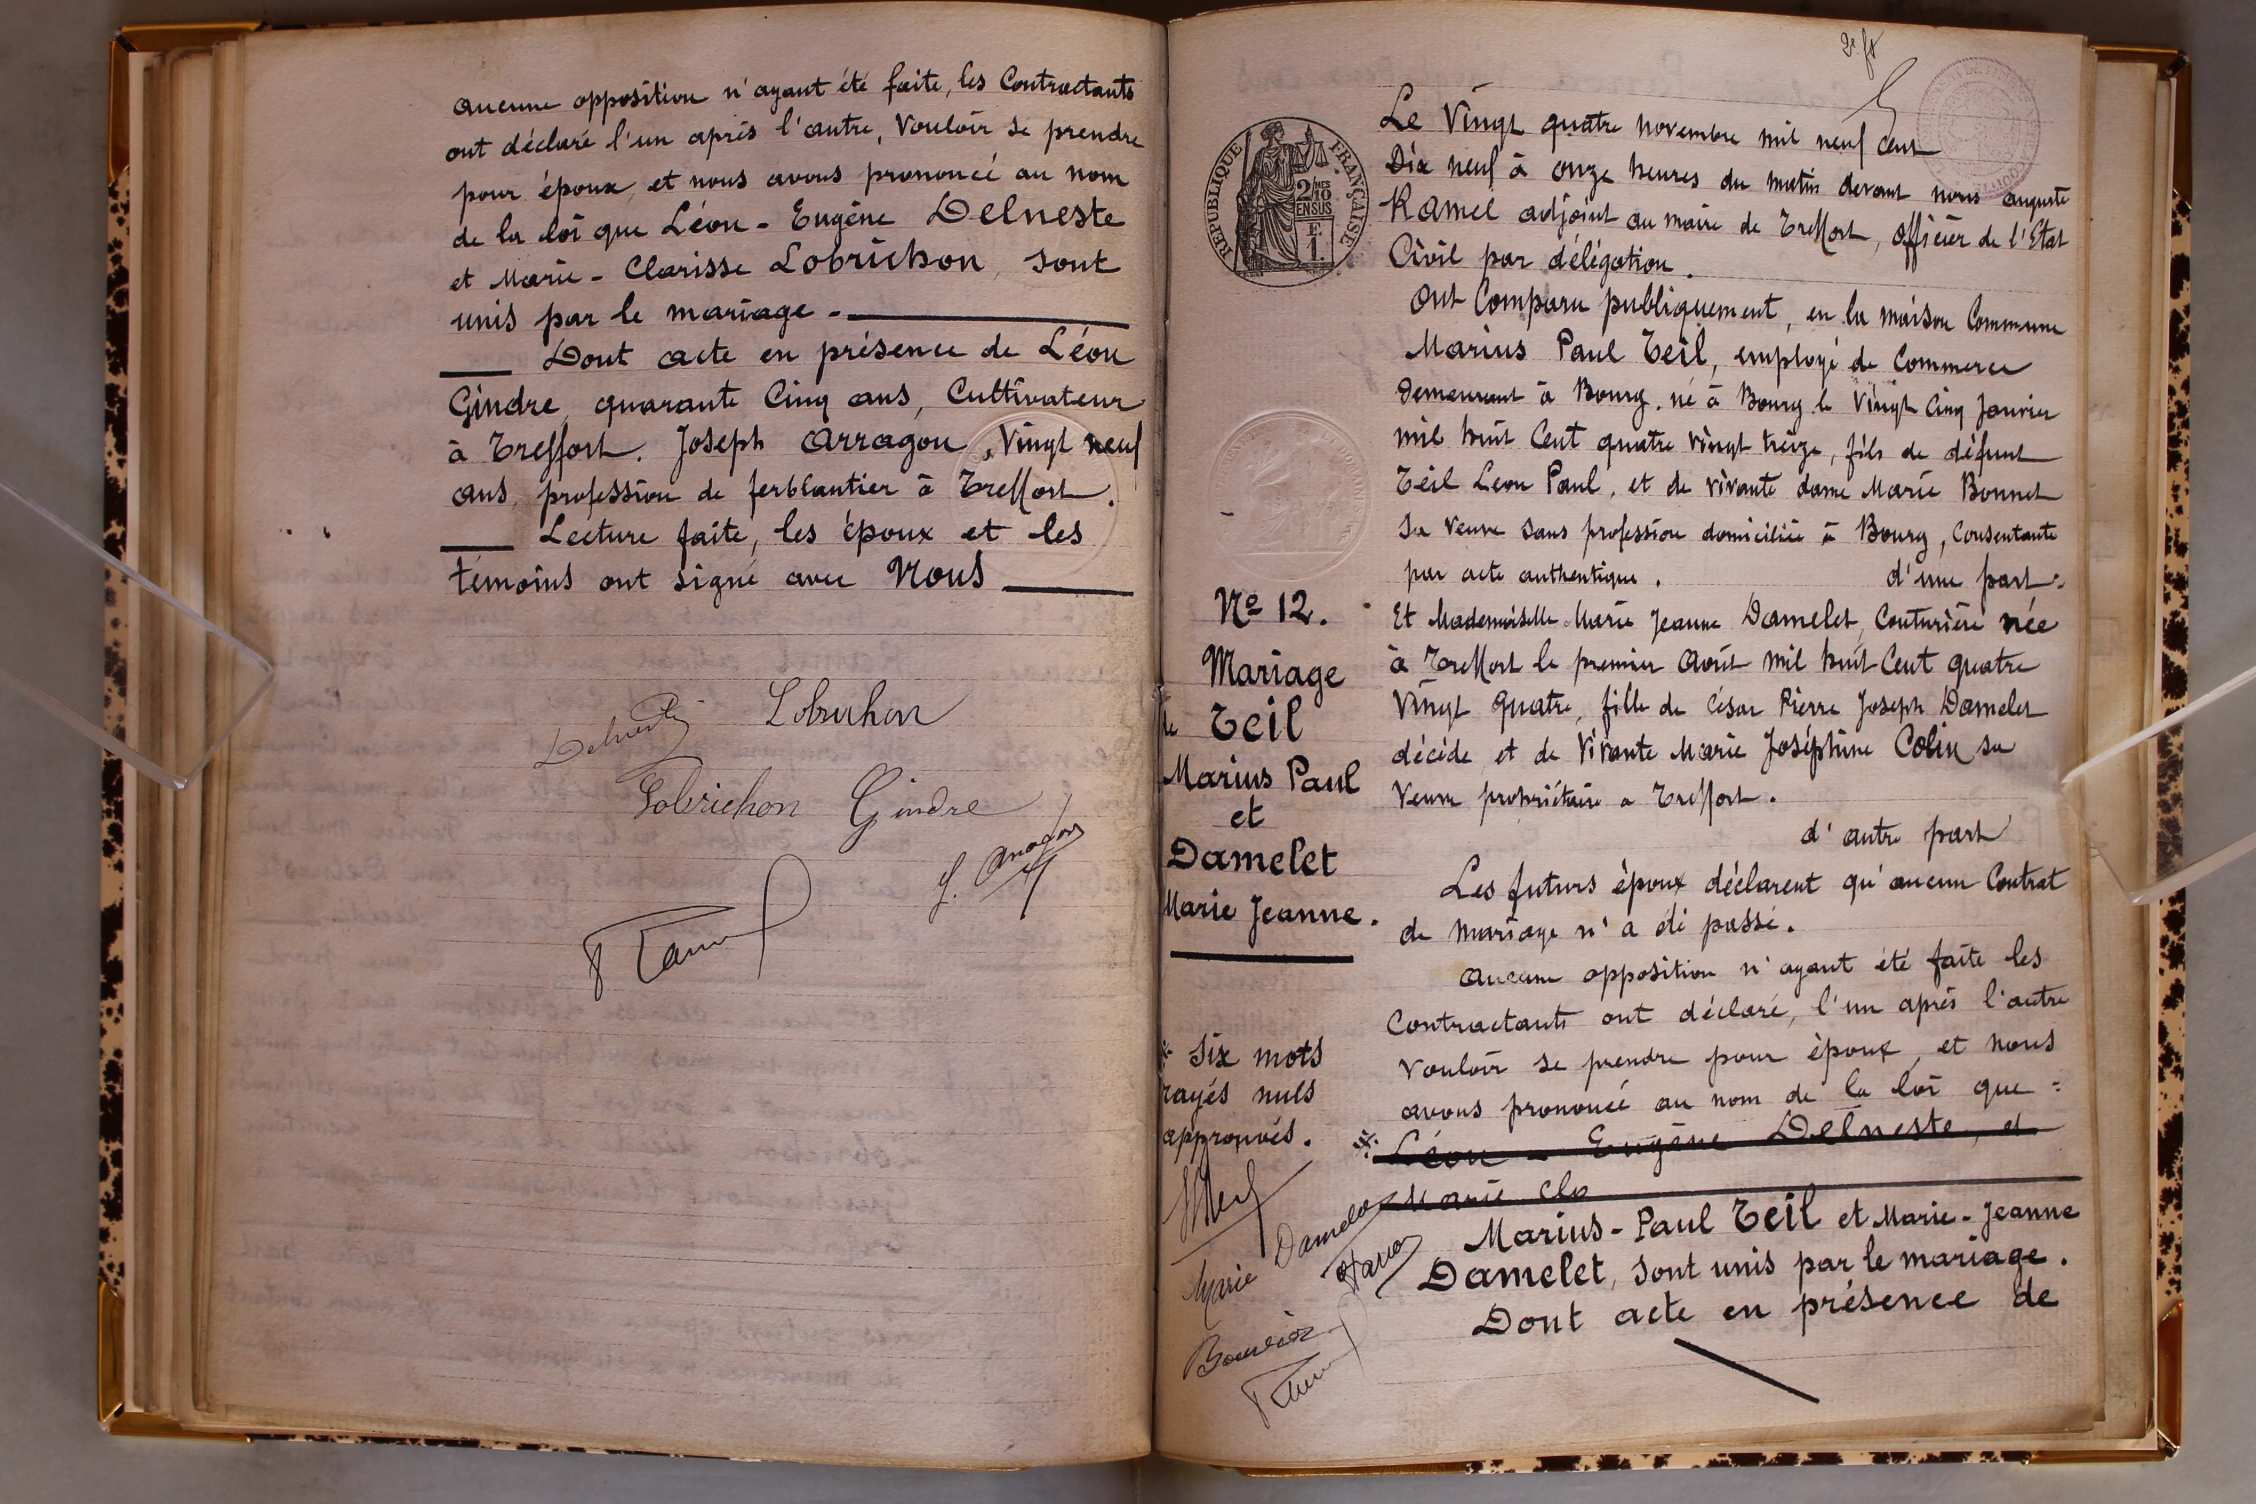 aucune opposition n'ayant été faite, les Contractants
ont déclaré l'un après l'autre, Vouloir se prendre
pour époux, et nous avons prononcé au nom
de la loi que Léon - Eugène Delneste
et Marie - Clarisse Lobrichon, sont
unis par le mariage -
Dont acte en présence de Léon
Gindre, quarante Cinq ans, Cultivateur
à Treffort. Joseph Arragon, Vingt neuf
ans, profession de ferblantier à Treffort.
Lecture faite, les époux et les
témoins ont signé avec Nous
Lobrichon
Lobrichon Gindre
2e ft
RÉPUBLIQUE FRANÇAISE
Le Vingt quatre novembre mil neuf cent
Dix neuf à onze heures du matin devant nous auguste
Ramel adjoint au maire de Treffort, officier de l'Etat
Civil par délégation.
Ont Comparu publiquement, en la maison Commune
Marius Paul Teil, employé de Commerce
Demeurant à Bourg, né à Bourg le Vingt Cinq Janvier
mil huit Cent quatre vingt treize, fils de défunt
Teil Leon Paul, et de vivante dame Marie Bonnet
Sa Veuve sans profession domiciliée à Bourg, Consentante
par acte authentique. d'une part.
Et Mademoiselle Marie Jeanne Damelet, Couturière née
à Treffort le premier Août mil huit Cent quatre
Vingt quatre, fille de César Pierre Joseph Damelet
décédé, et de Vivante Marie Joséphine Colin sa
Veuve propriétaire a Treffort.
d'autre part
Les futurs époux déclarent qu'aucun Contrat
de mariage n'a été passé.
Aucune opposition n'ayant été faite les
Contractants ont déclaré, l'un après l'autre
vouloir se prendre pour époux, et nous
avons prononcé au nom de la loi que =
Léon - Eugène Delneste, et
Marie Cla
Marius - Paul Teil et Marie - Jeanne
Damelet, sont unis par le mariage.
Dont acte en présence de
No 12.
Mariage
de Teil
Marius Paul
et
Damelet
Marie Jeanne.
Six mots
rayés nuls
approuvés.
Marie Damelet
Bouvier